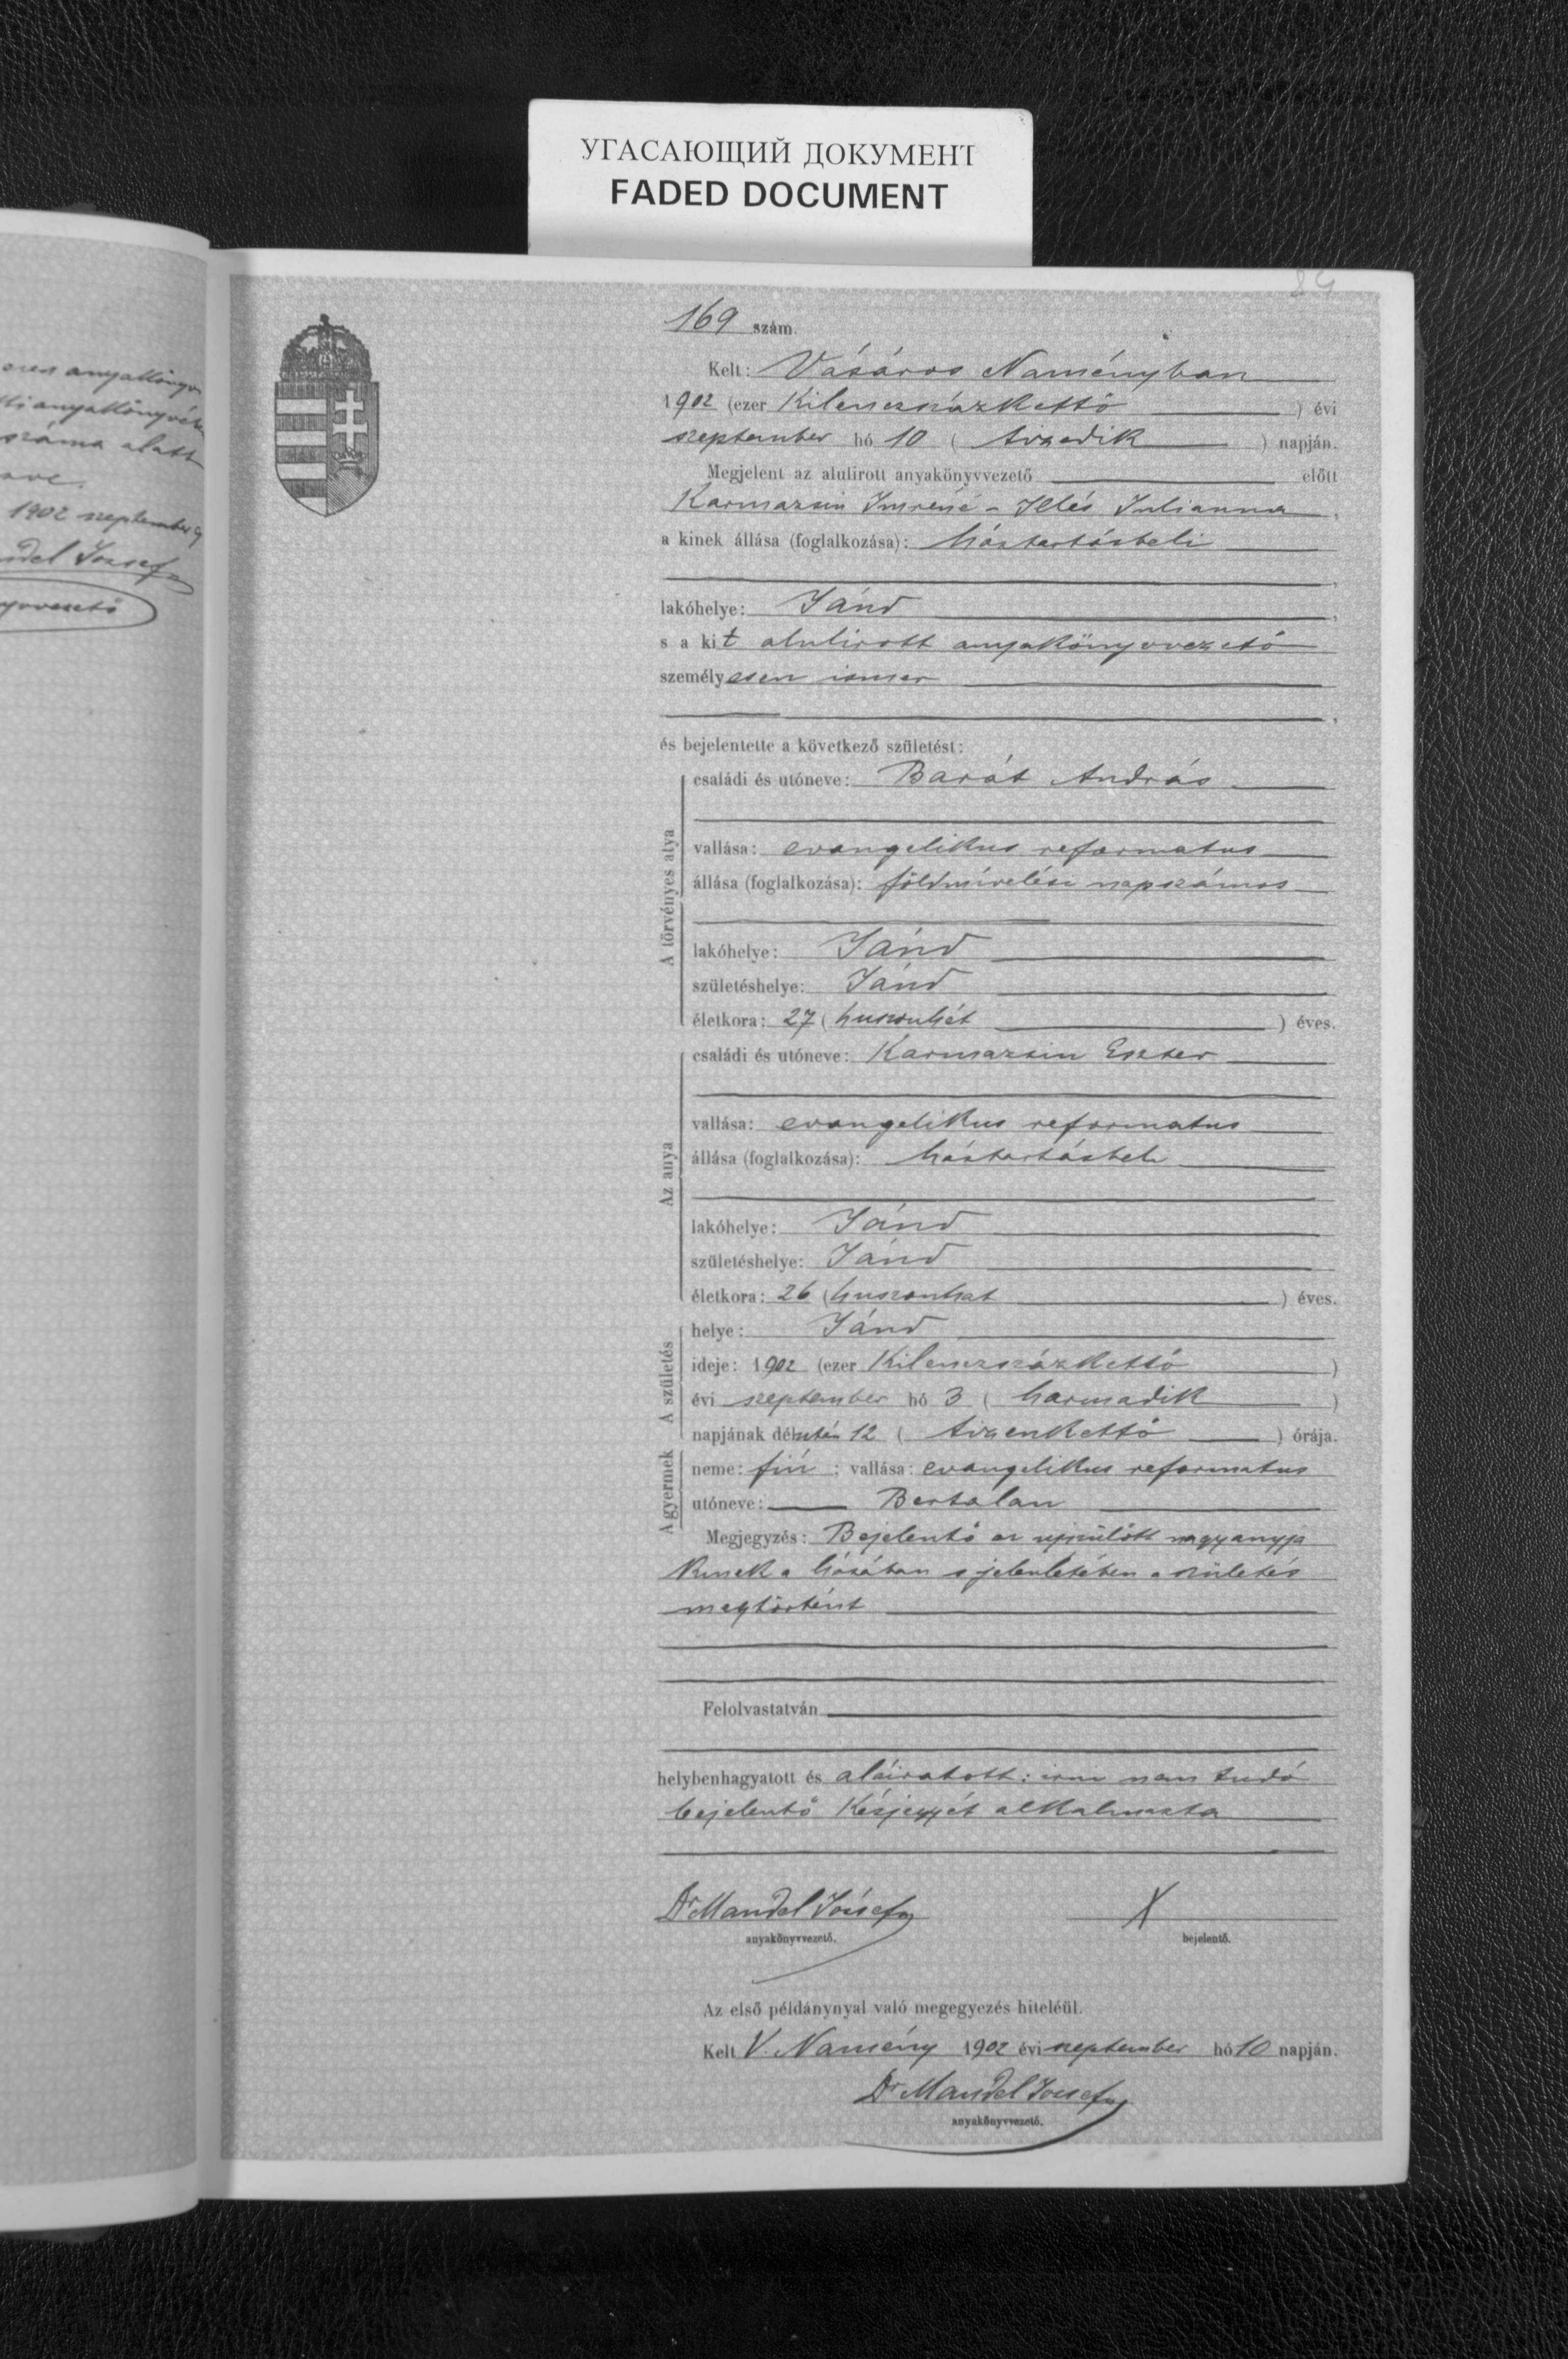 УГАСАЮЩИЙ ДОКУМЕНТ
FADED DOCUMENT
84
anyakönyv
anyakönyvi
száma alatt
1902 szeptember 9
del József
yvvezető
169 szám.
Kelt: Vásáros Naményban
1902 (ezer Kilenczszázkettő ) évi
szeptember hó 10 ( tizedik ) napján.
Megjelent az alulirott anyakönyvvezető előtt
Karmazsin Imréné - Illés Julianna,
a kinek állása (foglalkozása): háztartásbeli
,
lakóhelye: Jánd ,
s a kit alulirott anyakönyvvezető
személyesen ismer
,
és bejelentette a következő születést:
A törvényes atya
családi és utóneve: Barát András
vallása: evangelikus reformatus
állása (foglalkozása): földmívelési napszámos
lakóhelye: Jánd
születéshelye: Jánd
életkora: 27 ( huszonhét ) éves.
Az anya
családi és utóneve: Karmazsin Eszter
vallása: evangelikus reformatus
állása (foglalkozása): háztartásbeli
lakóhelye: Jánd
születéshelye: Jánd
életkora: 26 (huszonhat ) éves.
A születés
helye: Jánd
ideje: 1902 (ezer Kilenczszázkettő )
évi szeptember hó 3 ( harmadik )
napjának délután 12 ( tizenkettő ) órája.
A gyermek
neme: fiú ; vallása: evangelikus reformatus
utóneve: Bertalan
Megjegyzés: Bejelentő az ujszülött nagyanyja
kinek a házában s jelenlétében a születés
megtörtént
Felolvastatván
helybenhagyatott és aláiratott: irni nem tudó
bejelentő kézjegyét alkalmazta
Dr Mandel József X
anyakönyvvezető. bejelentő.
Az első példánynyal való megegyezés hiteléül.
Kelt V. Namény 1902 évi szeptember hó 10 napján.
Dr Mandel József
anyakönyvvezető.